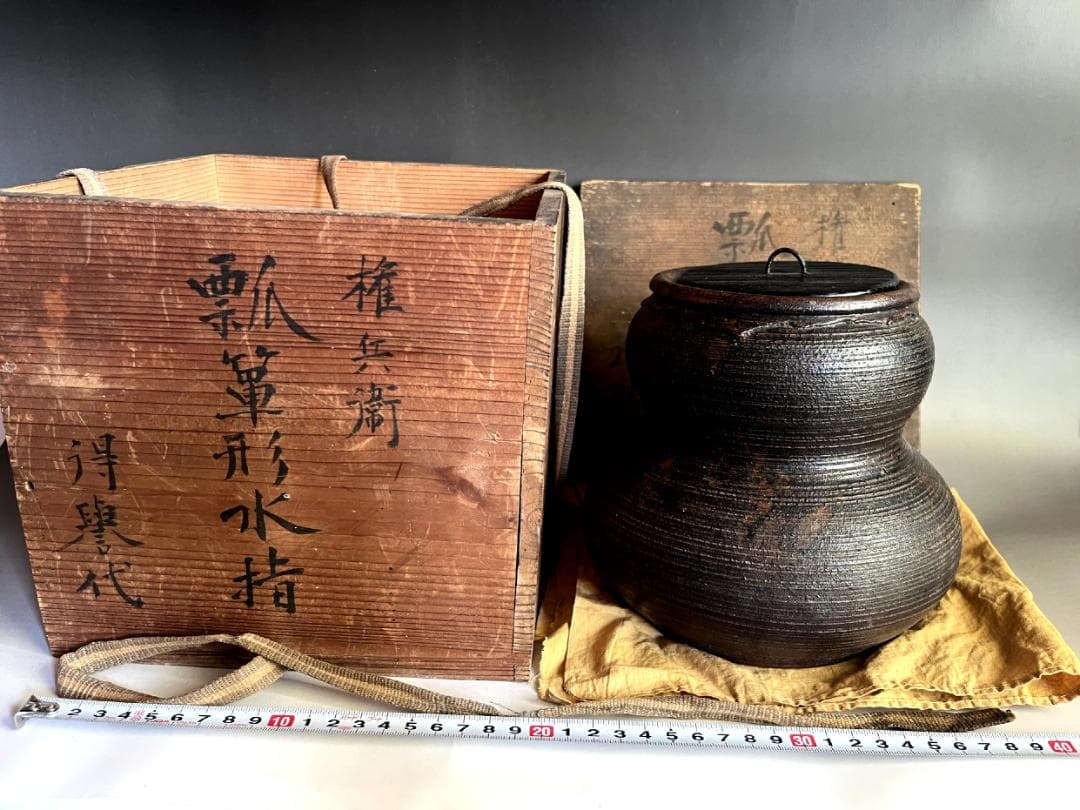 権兵衛
瓢箪形水指
得誉代
権
瓢
2 3 4 5 6 7 8 9 10 1 2 3 4 5 6 7 8 9 20 1 2 3 4 5 6 7 8 9 30 1 2 3 4 5 6 7 8 9 40